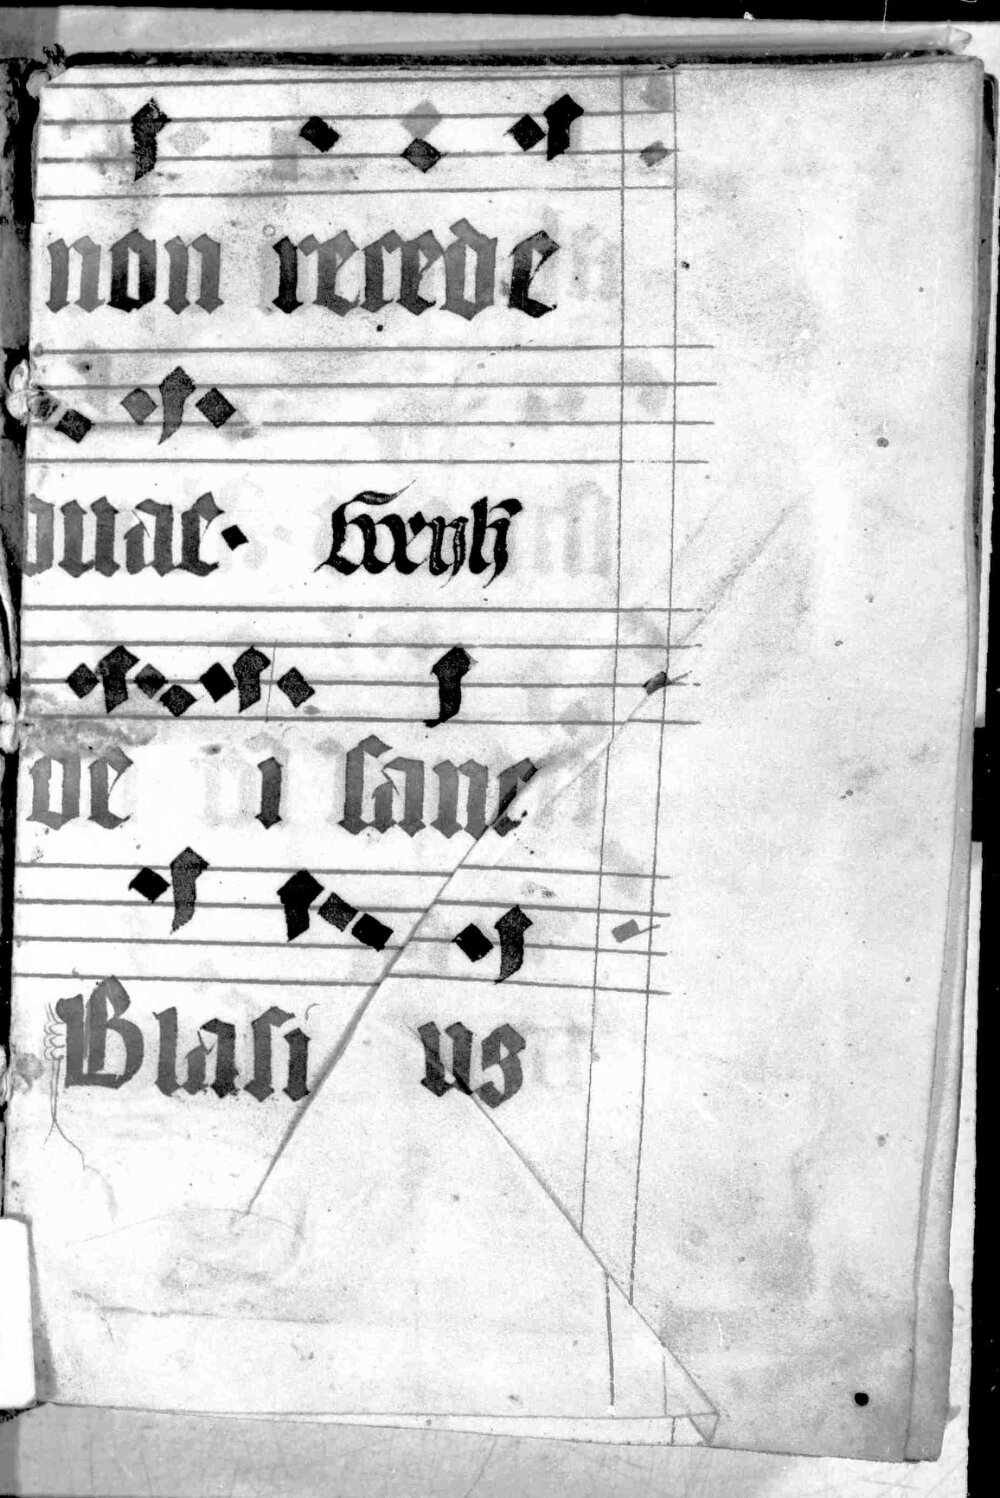 non recede
ouae.
de i sanc
Blasi us